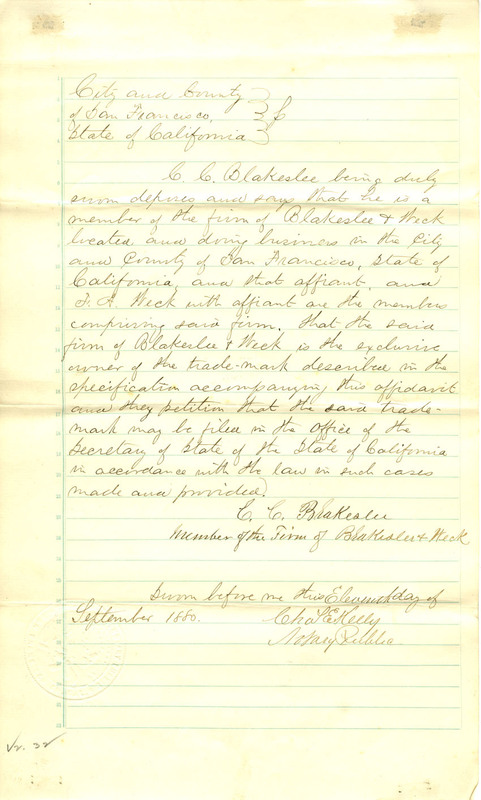 City and County
of San Francisco,
State of California
C. C. Blakeslee being duly
sworn deposes and says that he is a
member of the firm of Blakeslee & Weck
located and doing business in the City
and County of San Francisco, State of
California, and that affiant, and
F. A. Weck with affiant are the members
comprising said firm. That the said
firm of Blakeslee & Weck is the exclusive
owner of the trade-mark described in the
specification accompanying this affidavit
and they petition that the said trade-
mark may be filed in the office of the
Secretary of State of the State of California
in accordance with the law in such cases
made and provided.
C. C. Blakeslee
Member of the Firm of Blakeslee & Weck
Sworn before me this Eleventh day of
September 1880.
Chas E Kelly
Notary Public